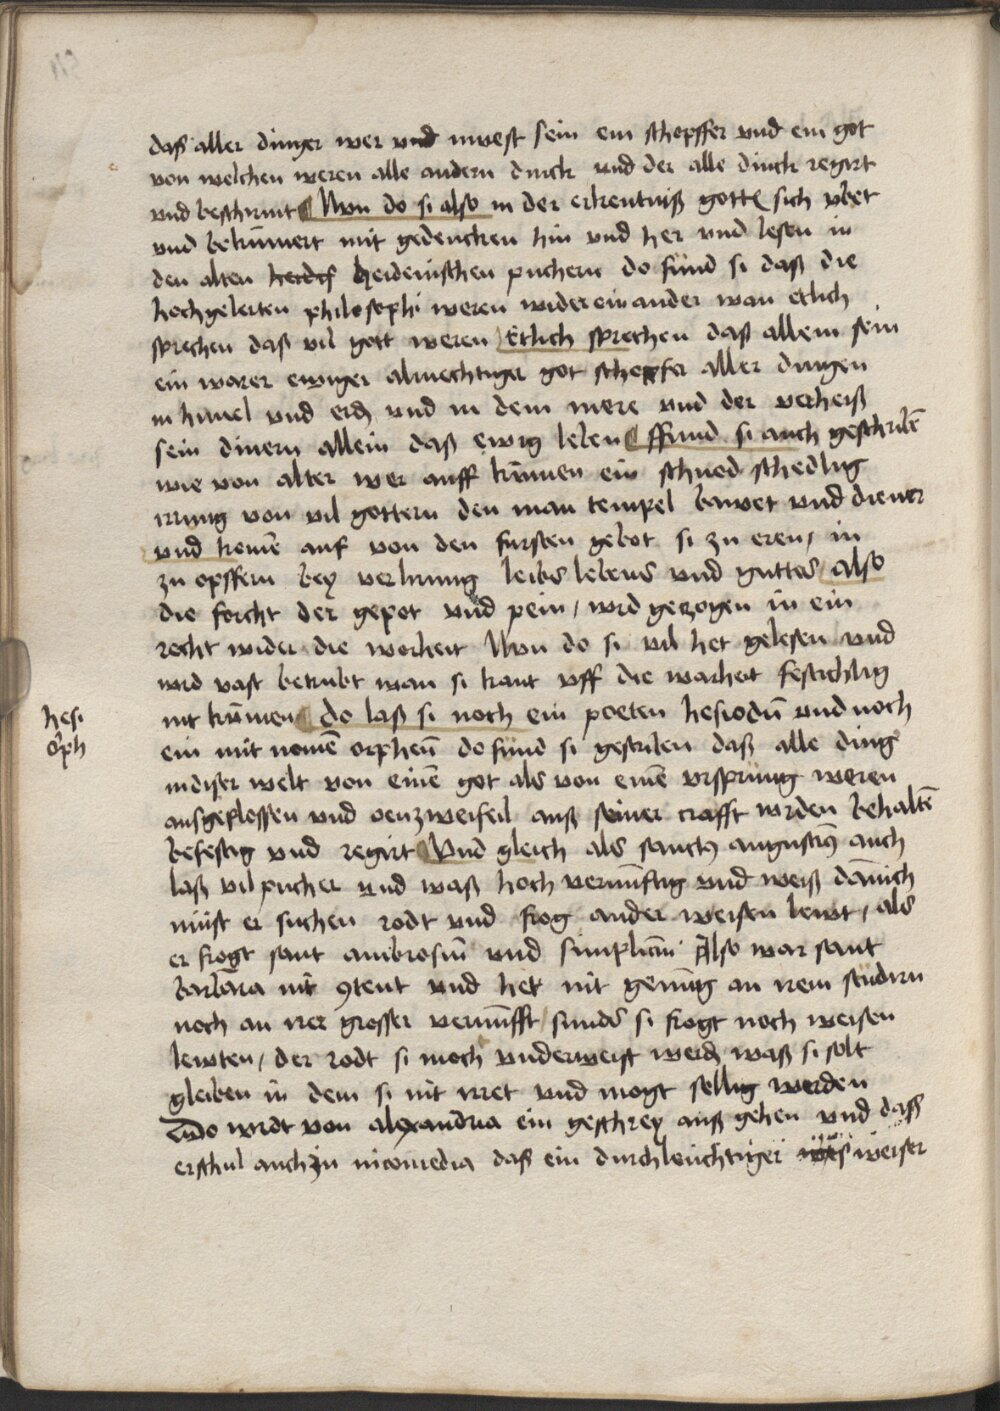 daß aller dinger wer vnd must sein ein schepffer vnd ein got
von welchen weren alle andern dinck vnd der alle dinck regirt
vnd beschirmt Nvn do si also in der erkentniß gottes sich vbet
vnd bekumert mit gedencken hin vnd her vnd lesen in
den alten heidenischen puchern do fund si daß die
hochgelerten philosophi weren wider ein ander wan etlich
sprechen daß vil gott weren Etlich sprechen daß allein sein
ein warer ewiger almechtiger got schepfer aller dingen
in himel vnd erd vnd in dem mere vnd der verheiß
sein dinern allein daß ewig leben ffund si auch geschribē
wie von alter wer auff kumen ein schned schedlig
irrung von vil gottern den man tempel bawet vnd dienet
vnd komē auf von den fursten gebot si zu eren / in
zu opffern bey verlirung leibs lebens vnd guttes also
die forcht der gepot vnd pein / wrd gezogen in ein
recht wider die worheit Nvn do si vil het gelesen vnd
wrd vast betrubt wan si kant vff die warheit festichlig
nit kumen do laß si noch ein poeten hesiodū vnd noch
hesi
orph
ein mit nomē orpheū do fund si gescriben daß alle ding
in diser welt von einē got als von einē vrsprung weren
ausgeflossen vnd oen zweifeil auß seiner crafft wrden behaltē
befestig vnd regirt Vnd gleich als sanctus augustinus auch
laß vil pucher vnd waß hoch vernūftig vnd weiß dānich
must er suchen rodt vnd frog ander weisen lewt / als
er frogt sant ambrosiū vnd simpliciū Also war sant
barbara nit 9tent vnd het nit genūg an irem studirn
noch an irer grosser vernūfft / sunder si frogt noch weisen
lewten / der rodt si moch vnderweist werd waß si solt
gleiben in dem si nit irret vnd mogt sellig werden
Do wrdt von alexandria ein geschrey auß gehen vnd daß
erschul auch zu nicomedia daß ein durchleuchtiger weiser